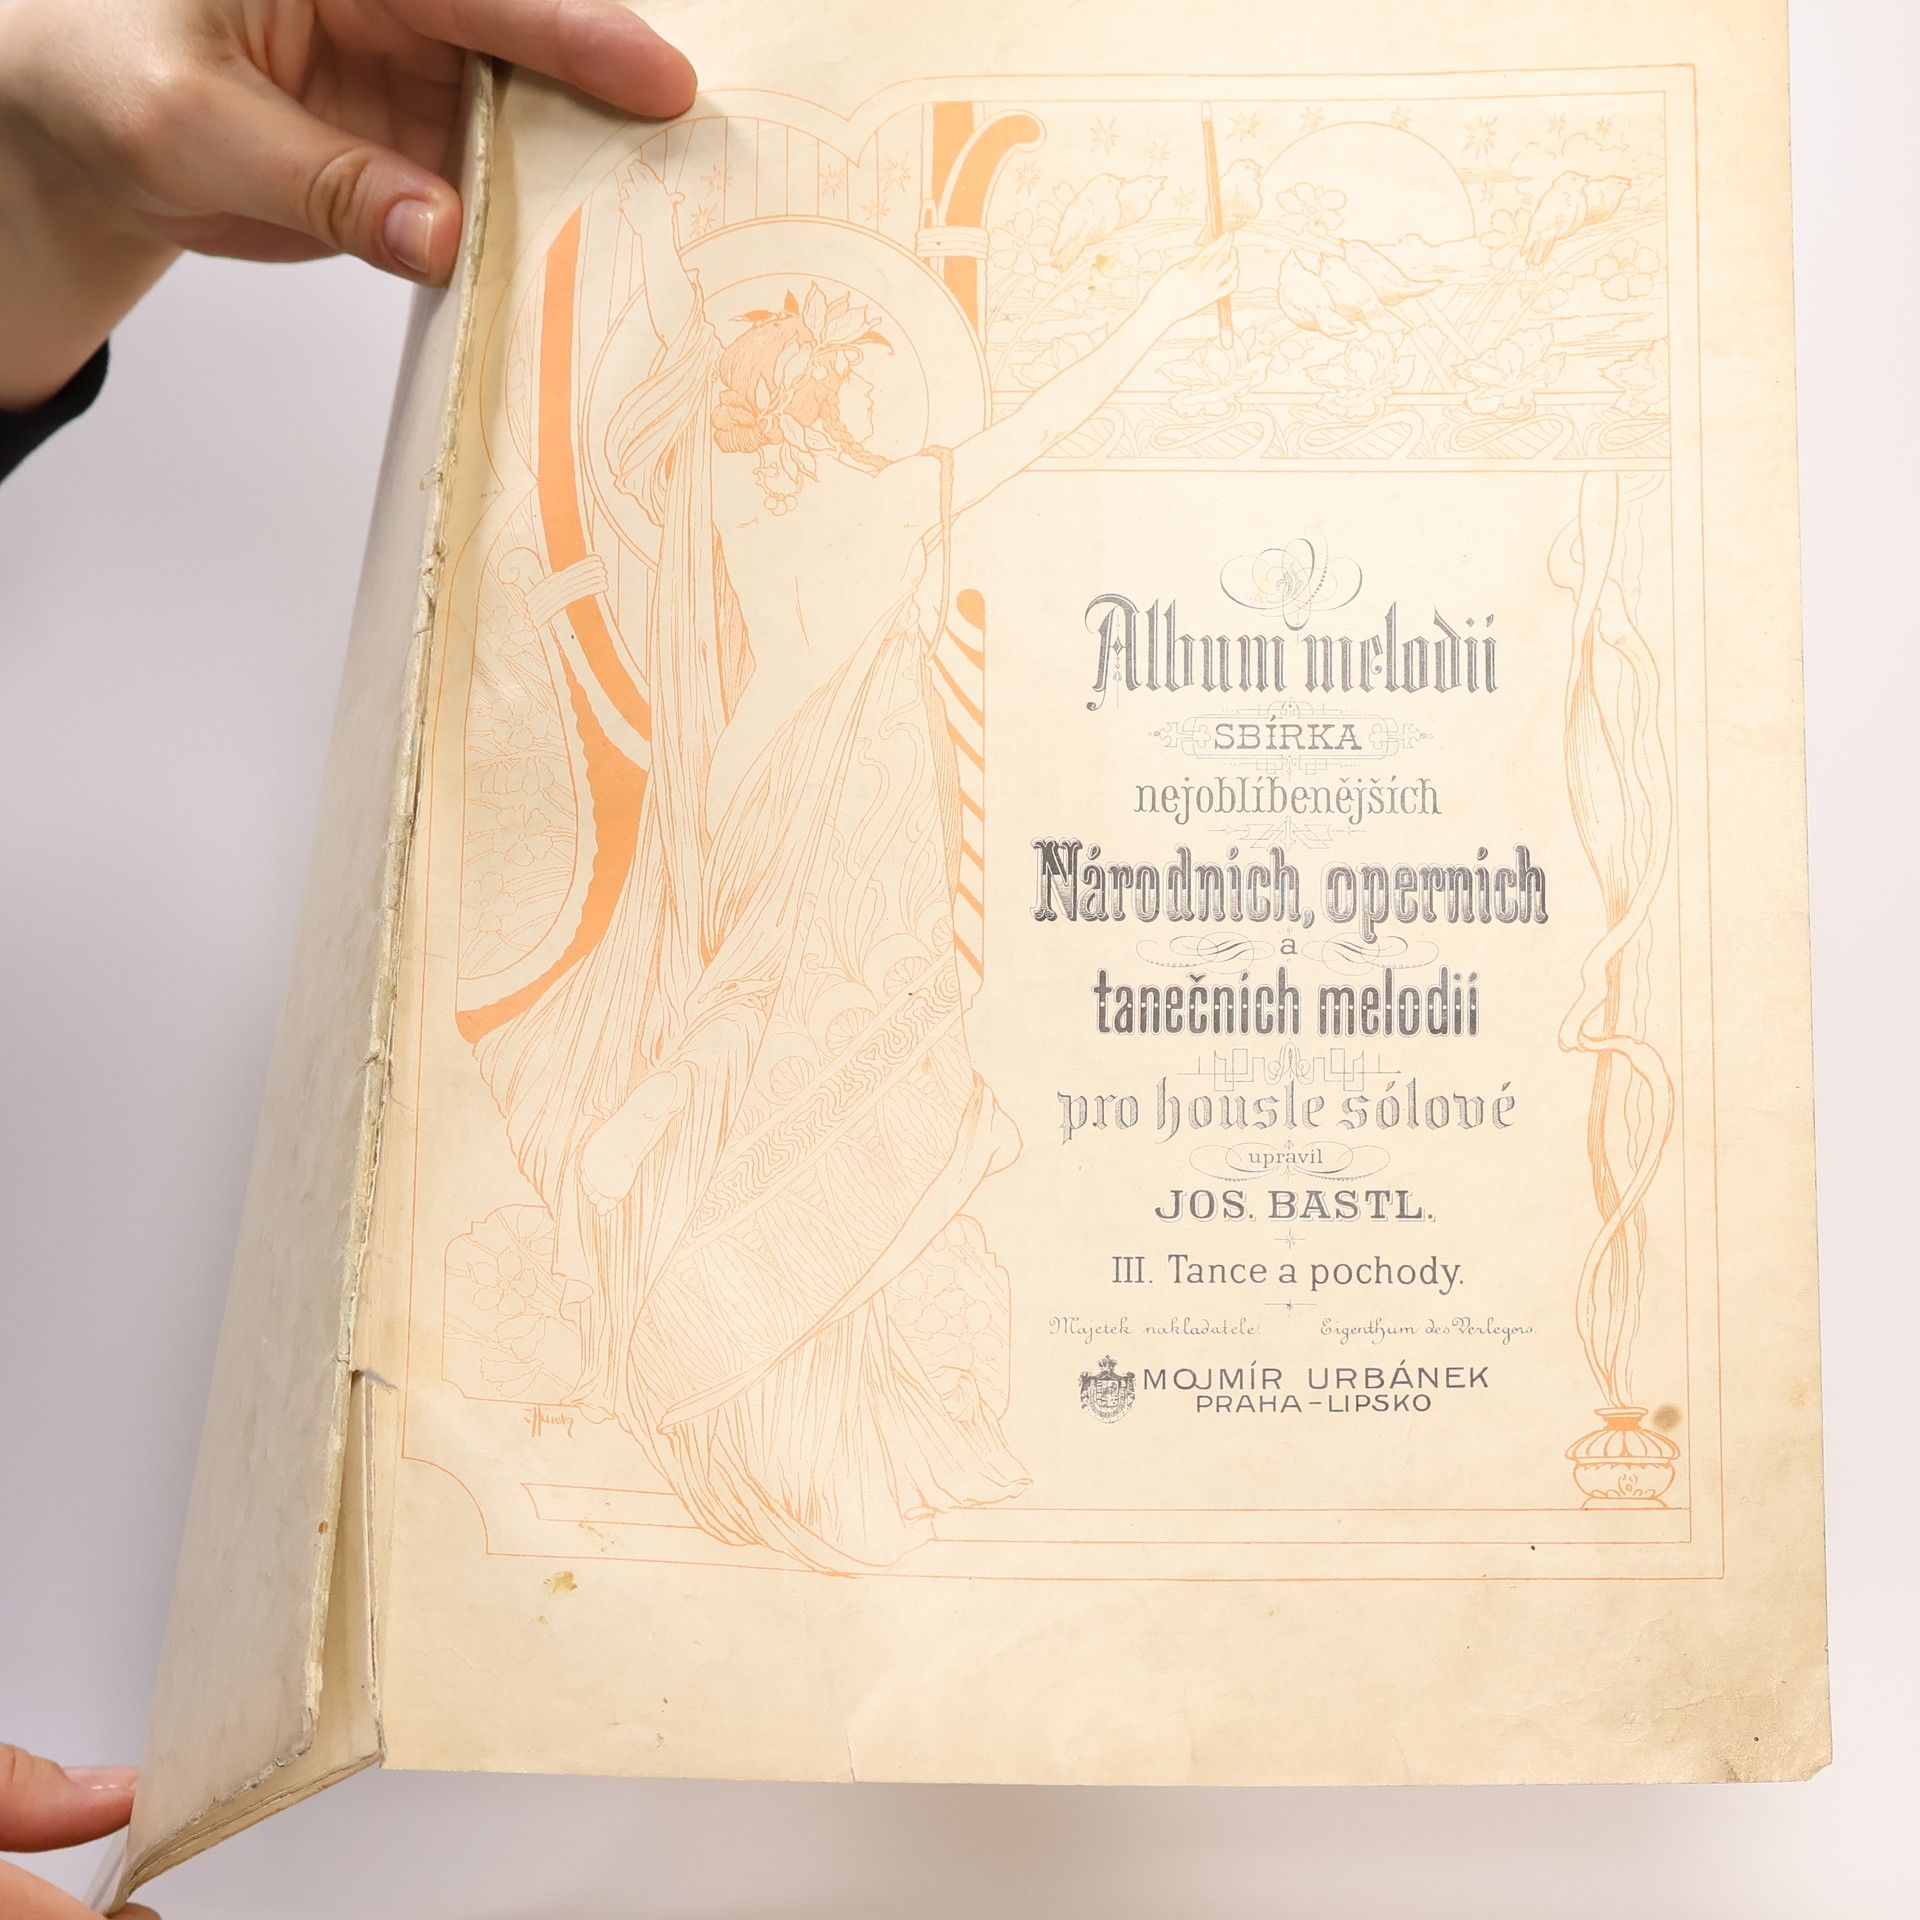 Album melodií
SBÍRKA
nejoblíbenějších
Národních, operních
a
tanečních melodií
pro housle sólové
upravil
JOS. BASTL.
III. Tance a pochody.
Majetek nakladatele. Eigenthum des Verlegers.
MOJMÍR URBÁNEK
PRAHA – LIPSKO